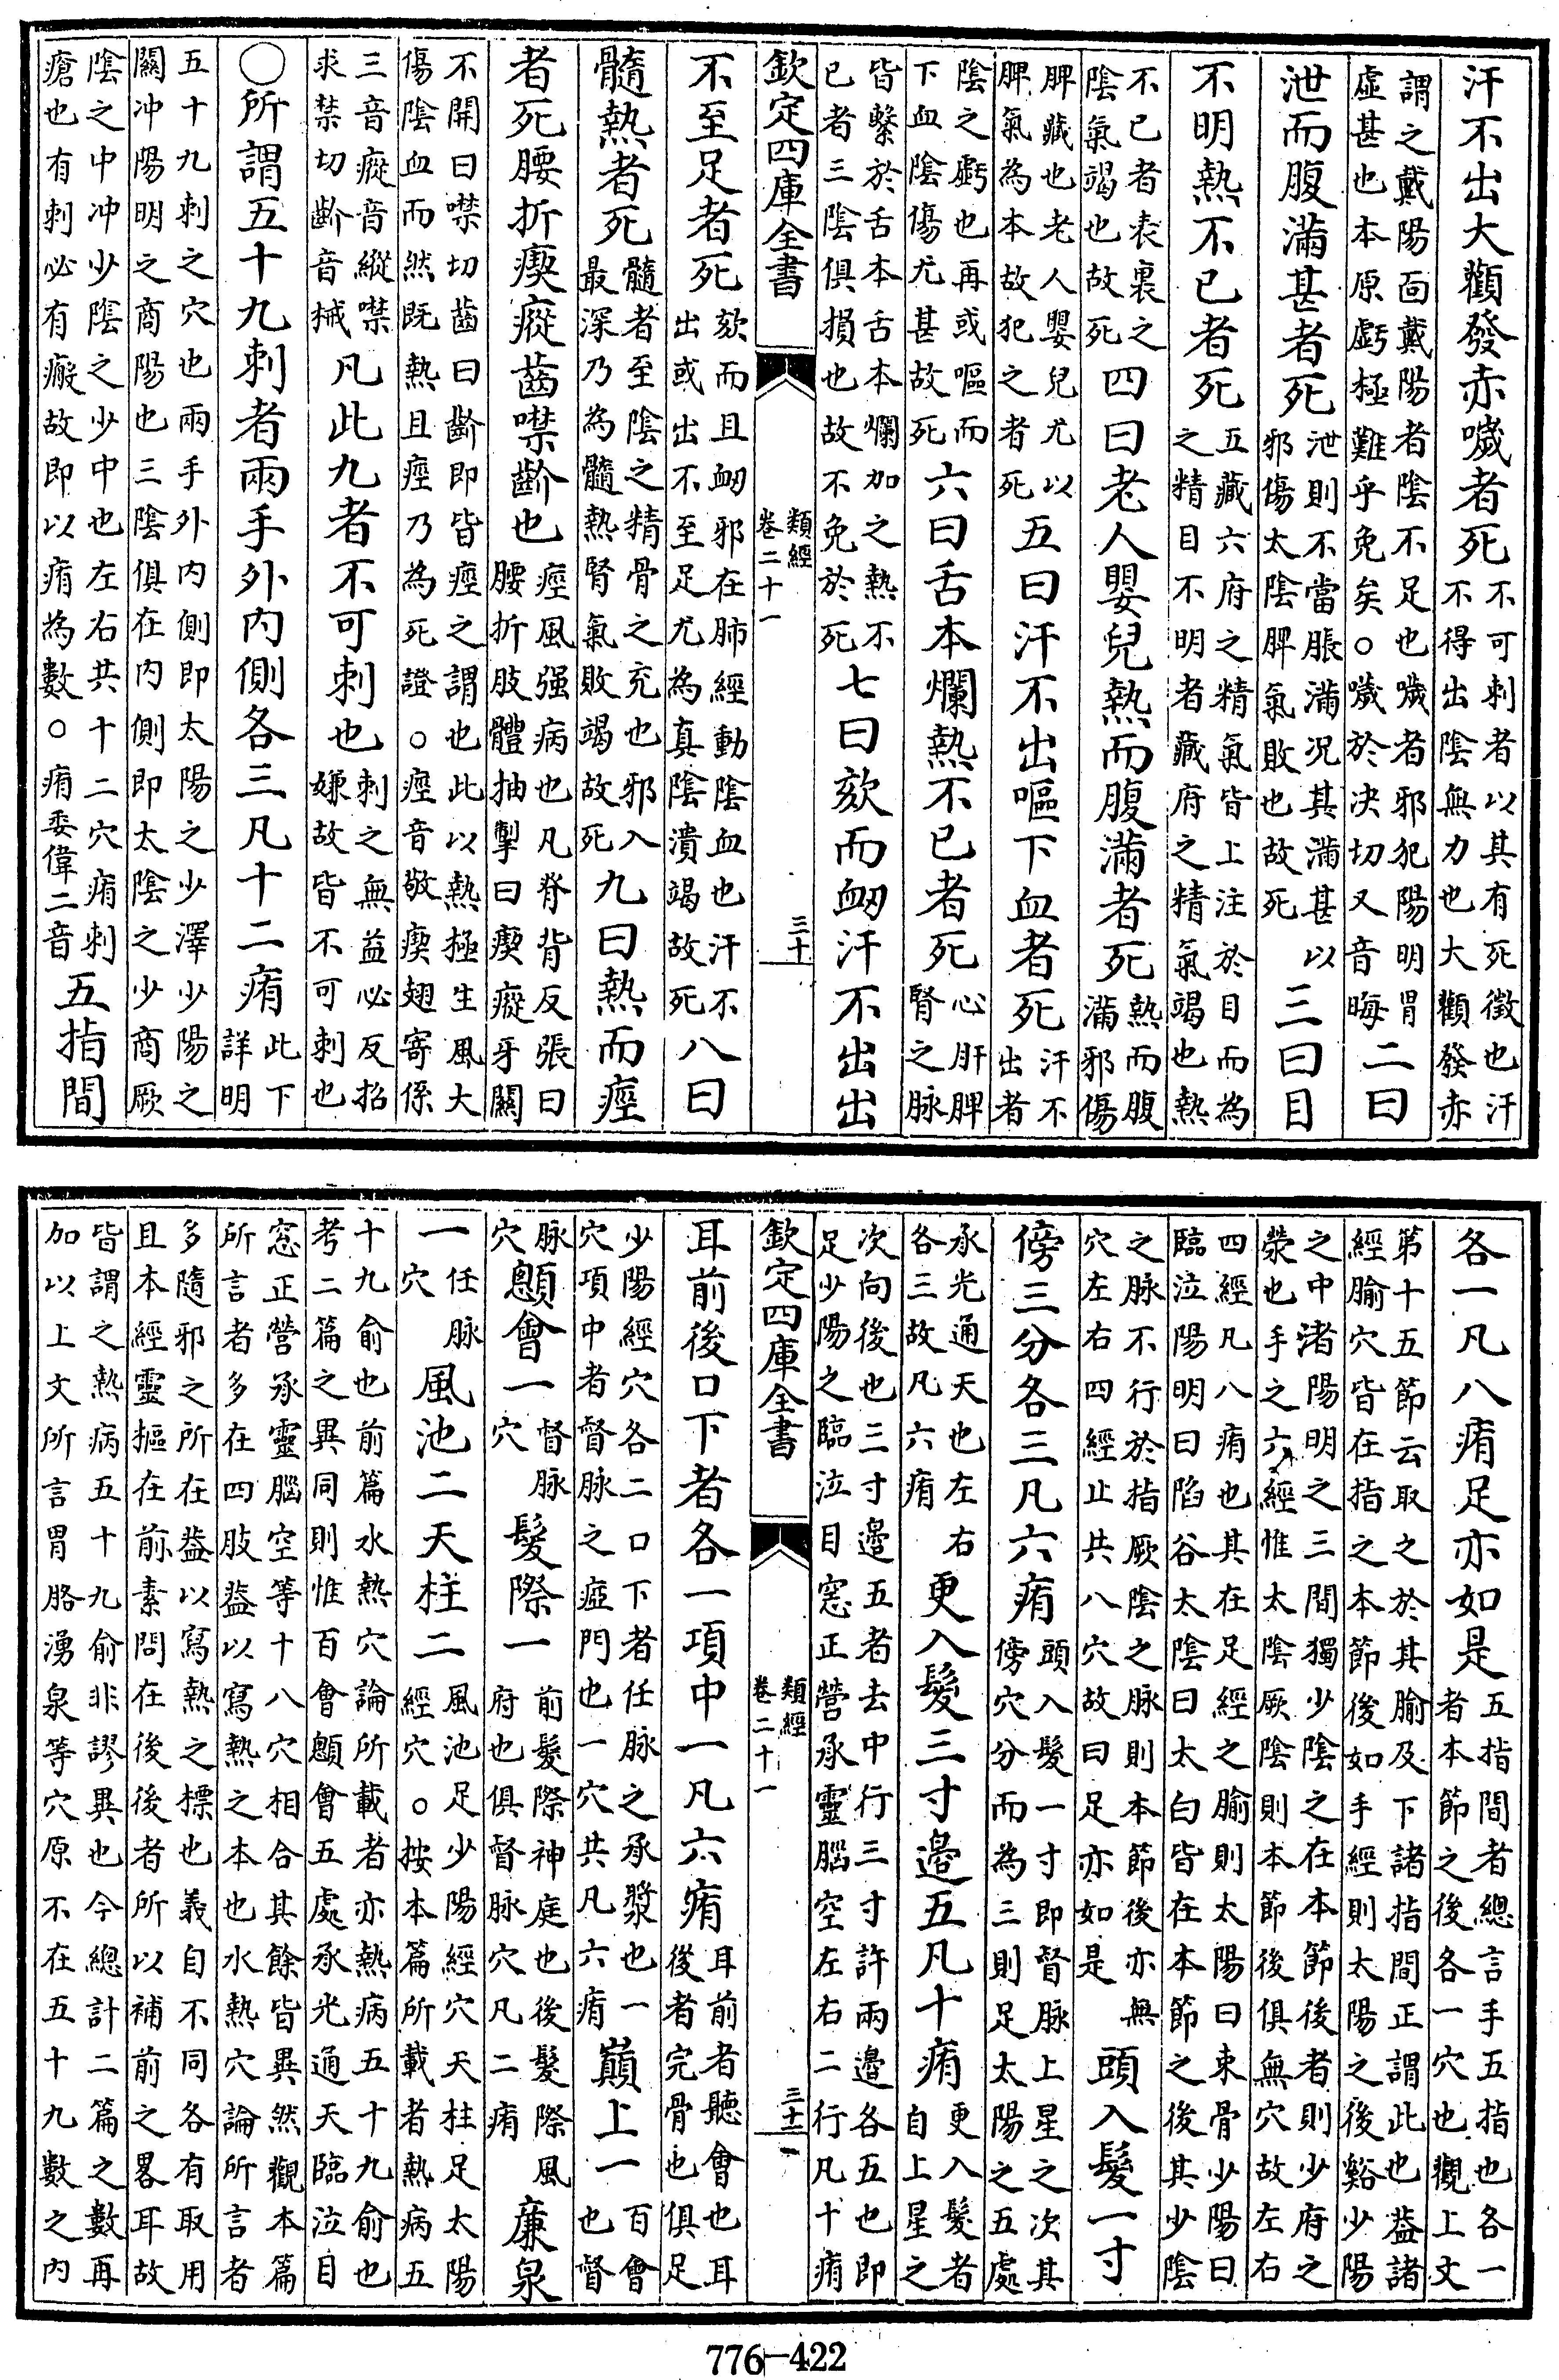 汗不出大顴發赤噦者死不可刺者以其有死徵也汗不得出陰無力也大顴發赤
謂之戴陽面戴陽者陰不足也噦者邪犯陽明胃虛甚也本原虧極難乎免矣○噦於决切又音晦二曰
泄而腹滿甚者死泄則不當脹滿况其滿甚以邪傷太陰脾氣敗也故死三曰目
不明熱不已者死五藏六府之精氣皆上注於目而為之精目不明者藏府之精氣竭也熱
不已者表裏之陰氣竭也故死四曰老人嬰兒熱而腹滿者死熱而腹滿邪傷
脾藏也老人嬰兒尤以脾氣為本故犯之者死五曰汗不出嘔下血者死汗不出者
陰之虧也再或嘔而下血陰傷尤甚故死六曰舌本爛熱不已者死心肝脾腎之脉
皆繫於舌本舌本爛加之熱不已者三陰俱損也故不免於死七曰欬而衂汗不出出
欽定四庫全書 類經卷二十一 三十
不至足者死欬而且衂邪在肺經動陰血也汗不出或出不至足尤為真陰潰竭故死八曰
髓熱者死髓者至陰之精骨之充也邪入最深乃為髓熱腎氣敗竭故死九曰熱而痙
者死腰折瘈瘲齒噤齘也痙風强病也凡脊背反張曰腰折肢體抽掣曰瘈瘲牙關
不開曰噤切齒曰齘即皆痙之謂也此以熱極生風大傷陰血而然既熱且痙乃為死證○痙音敬瘈翅寄係
三音瘲音縱噤求禁切齘音械凡此九者不可刺也刺之無益必反招嫌故皆不可刺也
○所謂五十九刺者兩手外内側各三凡十二痏此下詳明
五十九刺之穴也兩手外内側即太陽之少澤少陽之關冲陽明之商陽也三陰俱在内側即太陰之少商厥
陰之中冲少陰之少中也左右共十二穴痏刺瘡也有刺必有瘢故即以痏為數○痏委偉二音五指間
各一凡八痏足亦如是五指間者總言手五指也各一者本節之後各一穴也觀上文
第十五節云取之於其腧及下諸指間正謂此也葢諸經腧穴皆在指之本節後如手經則太陽之後谿少陽
之中渚陽明之三間獨少陰之在本節後者則少府之滎也手之六經惟太陰厥陰則本節後俱無穴故左右
四經凡八痏也其在足經之腧則太陽曰束骨少陽曰臨泣陽明曰陷谷太陰曰太白皆在本節之後其少陰
之脉不行於指厥陰之脉則本節後亦無穴左右四經止共八穴故曰足亦如是頭入髮一寸
傍三分各三凡六痏頭入髮一寸即督脉上星之次其傍穴分而為三則足太陽之五處
承光通天也左右各三故凡六痏更入髮三寸邊五凡十痏更入髮者自上星之
次向後也三寸邊五者去中行三寸許兩邊各五也即足少陽之臨泣目窓正營承靈腦空左右二行凡十痏
欽定四庫全書 類經卷二十一 三十一
耳前後口下者各一項中一凡六痏耳前者聽會也耳後者完骨也俱足
少陽經穴各二口下者任脉之承漿也一穴項中者督脉之瘂門也一穴共凡六痏巔上一百會也督
脉穴顖會一督脉穴髮際一前髮際神庭也後髮際風府也俱督脉穴凡二痏廉泉
一任脉穴風池二天柱二風池足少陽經穴天柱足太陽經穴○按本篇所載者熱病五
十九俞也前篇水熱穴論所載者亦熱病五十九俞也考二篇之異同則惟百會顖會五處承光通天臨泣目
窓正營承靈腦空等十八穴相合其餘皆異然觀本篇所言者多在四肢葢以寫熱之本也水熱穴論所言者
多隨邪之所在葢以寫熱之標也義自不同各有取用且本經靈樞在前素問在後後者所以補前之畧耳故
皆謂之熱病五十九俞非謬異也今總計二篇之數再加以上文所言胃胳湧泉等穴原不在五十九數之内
776-422